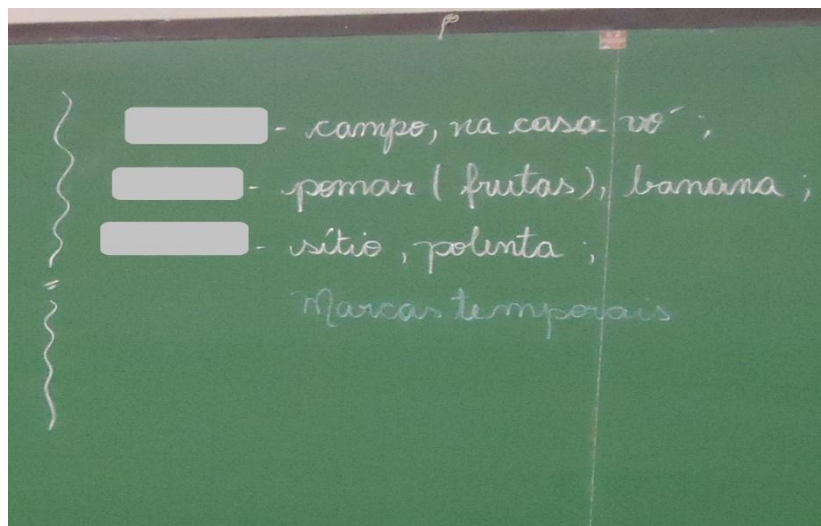 - campo, na casa vó ;
- pomar ( frutas ), banana ;
- sítio , polenta ;
Marcas temporais